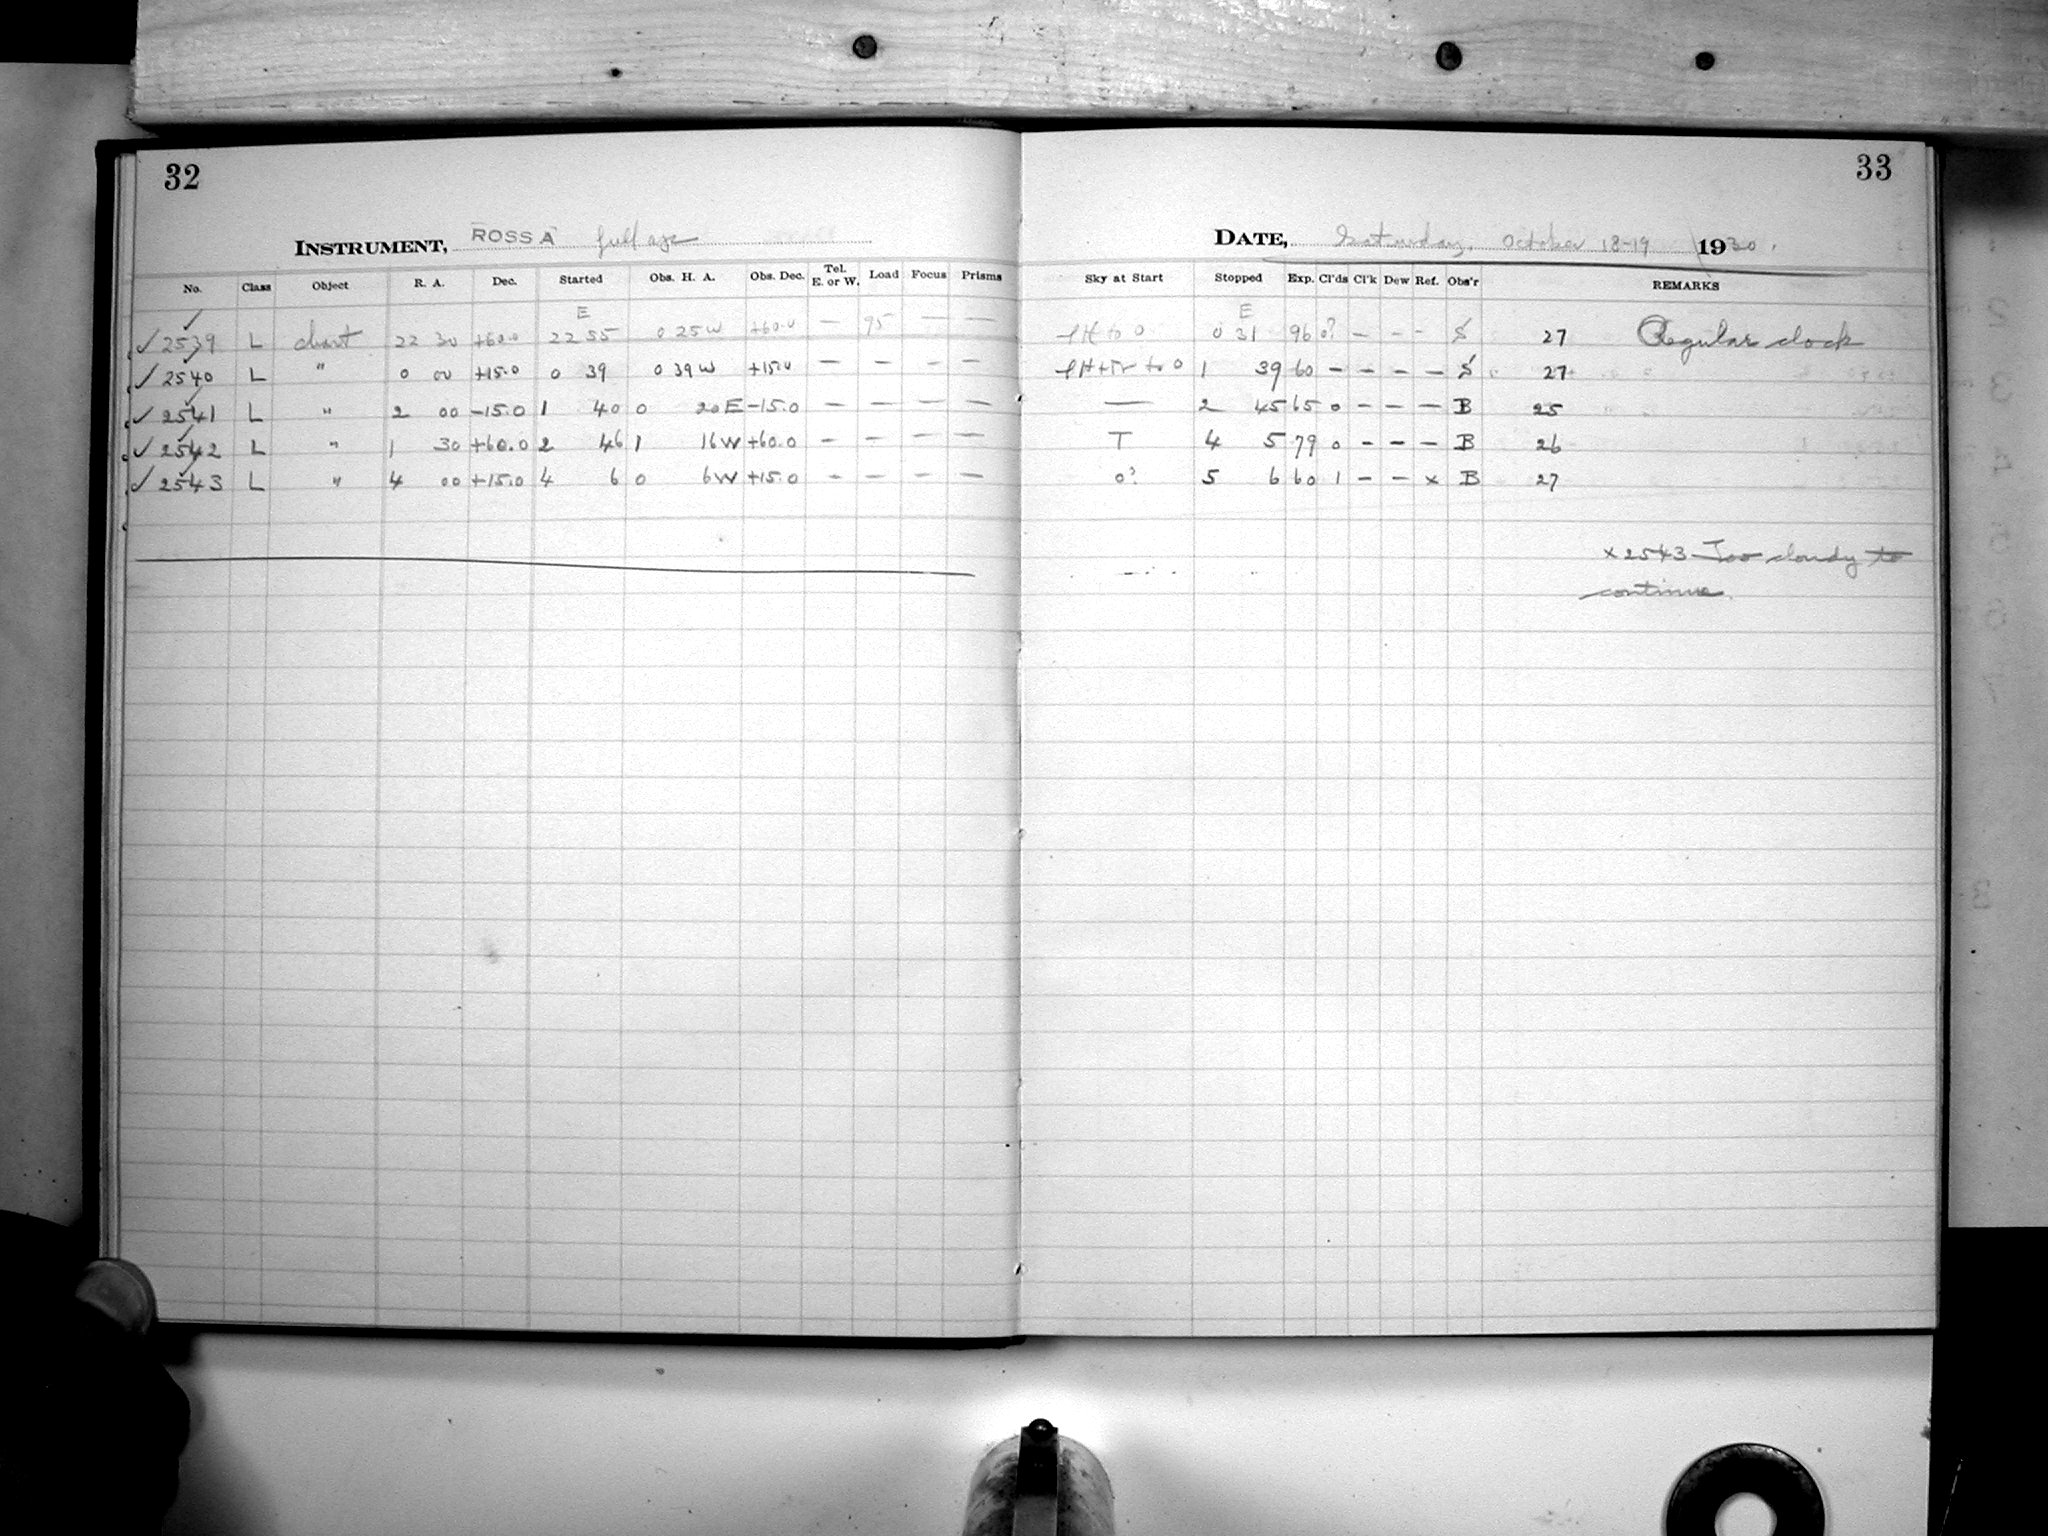 32
INSTRUMENT, ROSS A full ape
No. Class Object R. A. Dec. Started Obs. H. A. Obs. Dec. Tel. E. or W. Load Focus Prisms
E
✓ 2539 L chart 22 30 +60.0 22 55 0 25 W +60.0 — 95 — —
✓ 2540 L " 0 00 +15.0 0 39 0 39 W +15.0 — — - —
✓ 2541 L " 2 00 -15.0 1 40 0 20 E -15.0 — — — —
✓ 2542 L " 1 30 +60.0 2 46 1 16 W +60.0 - - — —
✓ 2543 L " 4 00 +15.0 4 6 0 6 W +15.0 - - — —
33
DATE, Saturday, October 18-19 1930.
Sky at Start Stopped Exp. Cl'ds Cl'k Dew Ref. Obs'r REMARKS
E
to 0 0 31 96 0? - - - S 27 Regular clock
to 0 1 39 60 - - - — S 27
— 2 45 65 0 - - — B 25
T 4 5 79 0 - - — B 26
0? 5 6 60 1 - - x B 27
x 2543 Too cloudy to
continue.